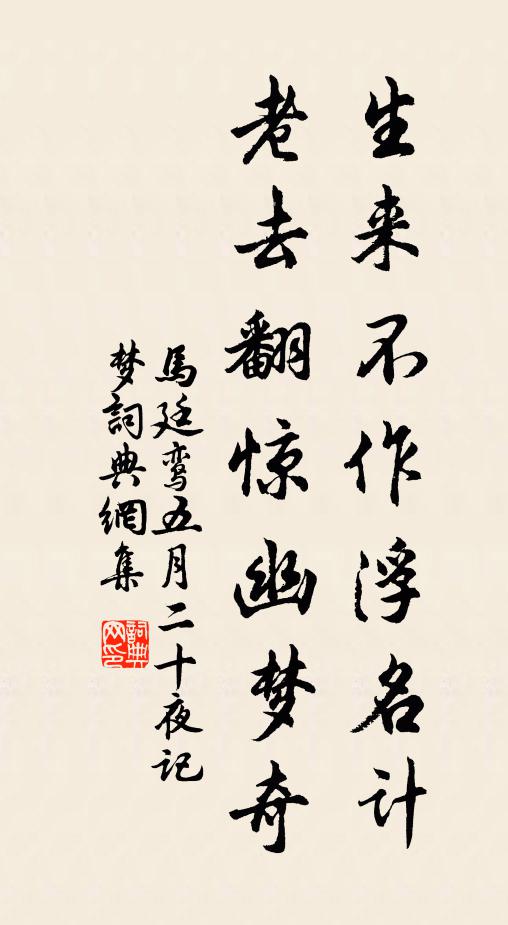 生来不作浮名计
老去翻惊幽梦奇
馬廷鸾五月二十夜记
梦詞典網集
詞典网印